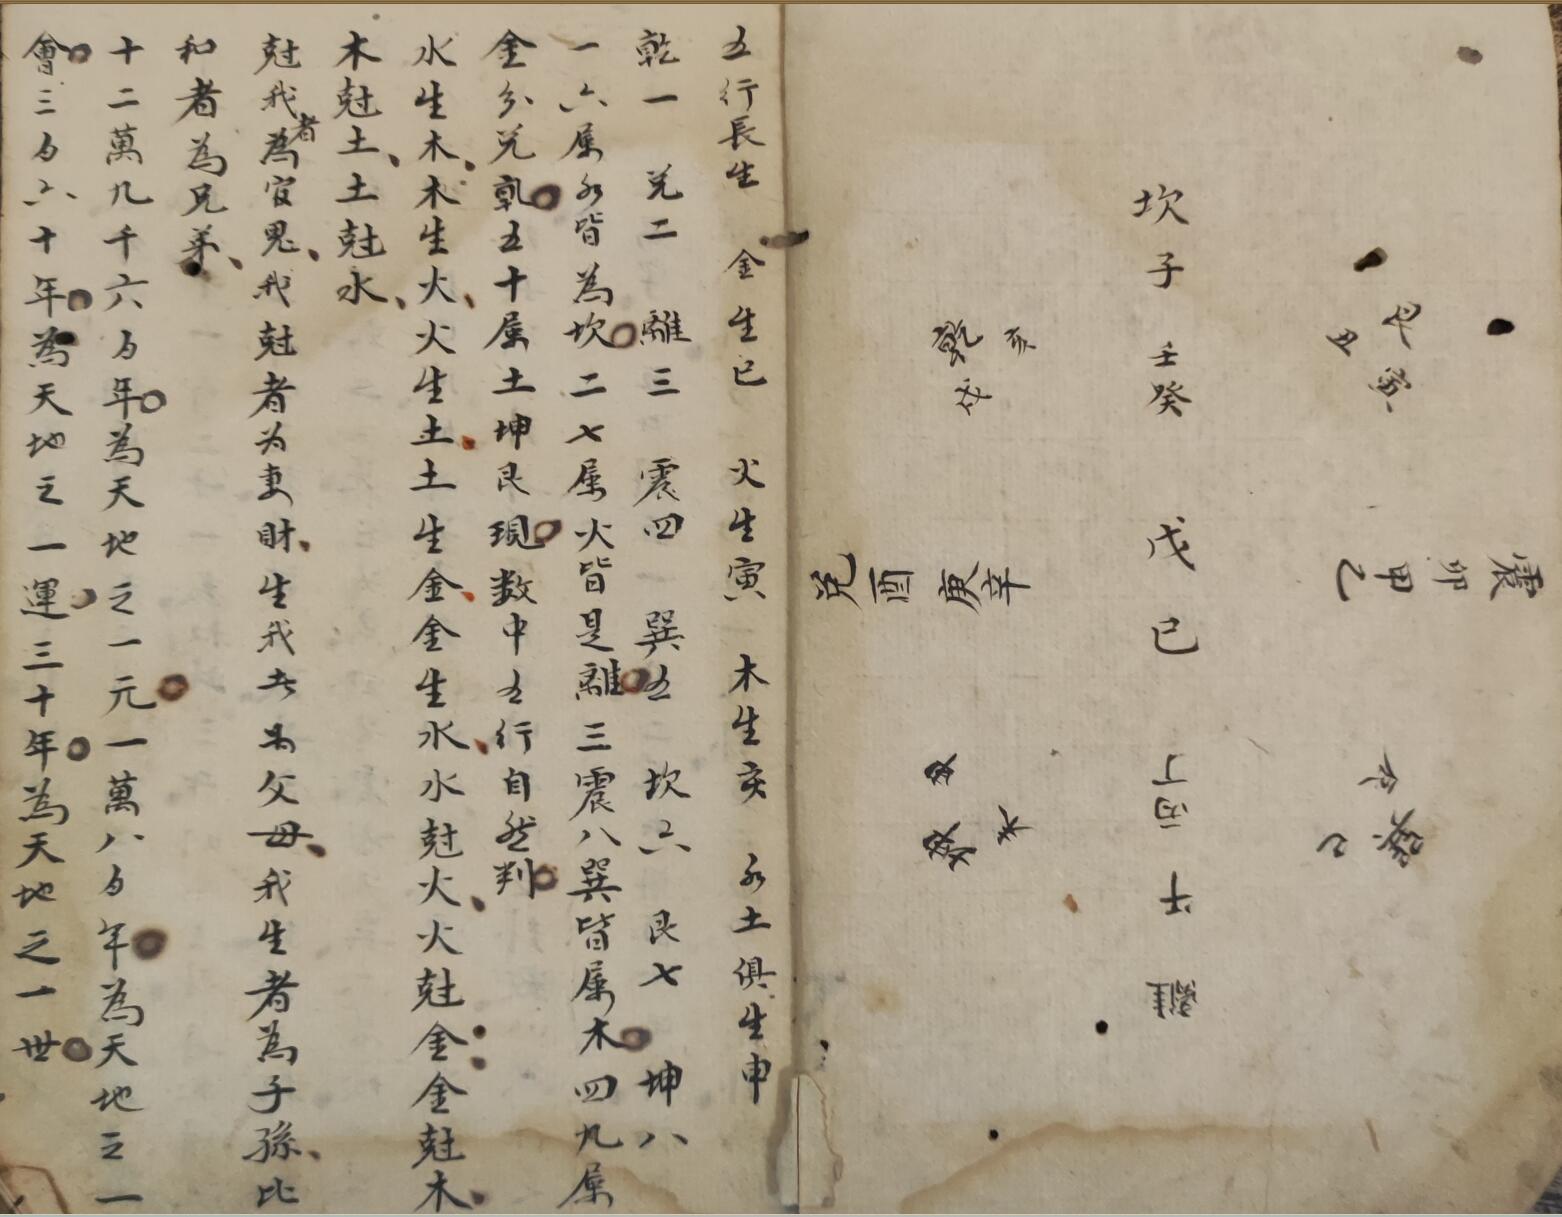 震卯甲乙
艮丑寅
巽巳
坎子壬癸
戊己
離午丙丁
乾亥戌
兌酉庚辛
五行長生 金生巳 火生寅 木生亥 水土俱生申
乾一 兌二 離三 震四 巽五 坎六 艮七 坤八
一六属水皆為坎二七属火皆是離三震八巽皆属木四九属
金分兌乾五十属土坤艮現数中五行自然判
水生木木生火火生土土生金金生水水尅火火尅金金尅木
木尅土土尅水
尅我者為官鬼我尅者为妻財生我者為父母我生者為子孫比
和者為兄弟
十二萬九千六百年為天地之一元一萬八百年為天地之一
會三百六十年為天地之一運三十年為天地之一世